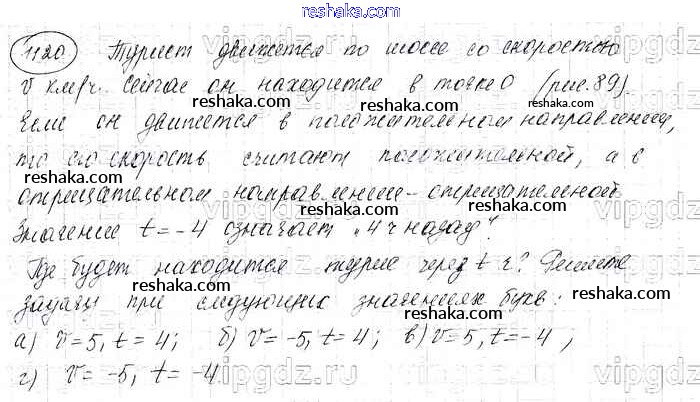 reshaka.com
1120 Турист движется по шоссе со скоростью
v км/ч. Сейчас он находится в точке 0 (рис.89).
reshaka.com reshaka.com
Если он движется в положительном направлении,
то его скорость считают положительной, а в
reshaka.com reshaka.com
отрицательном направлении - отрицательной.
Значение t = -4 означает „4 ч назад".
reshaka.com reshaka.com
Где будет находится турис через t ч? Решите
задачу при следующих значениях букв:
reshaka.com reshaka.com
а) v = 5, t = 4; б) v = -5, t = 4; в) v = 5, t = -4,
г) v = -5, t = -4
reshaka.com reshaka.com
vipgdz.ru